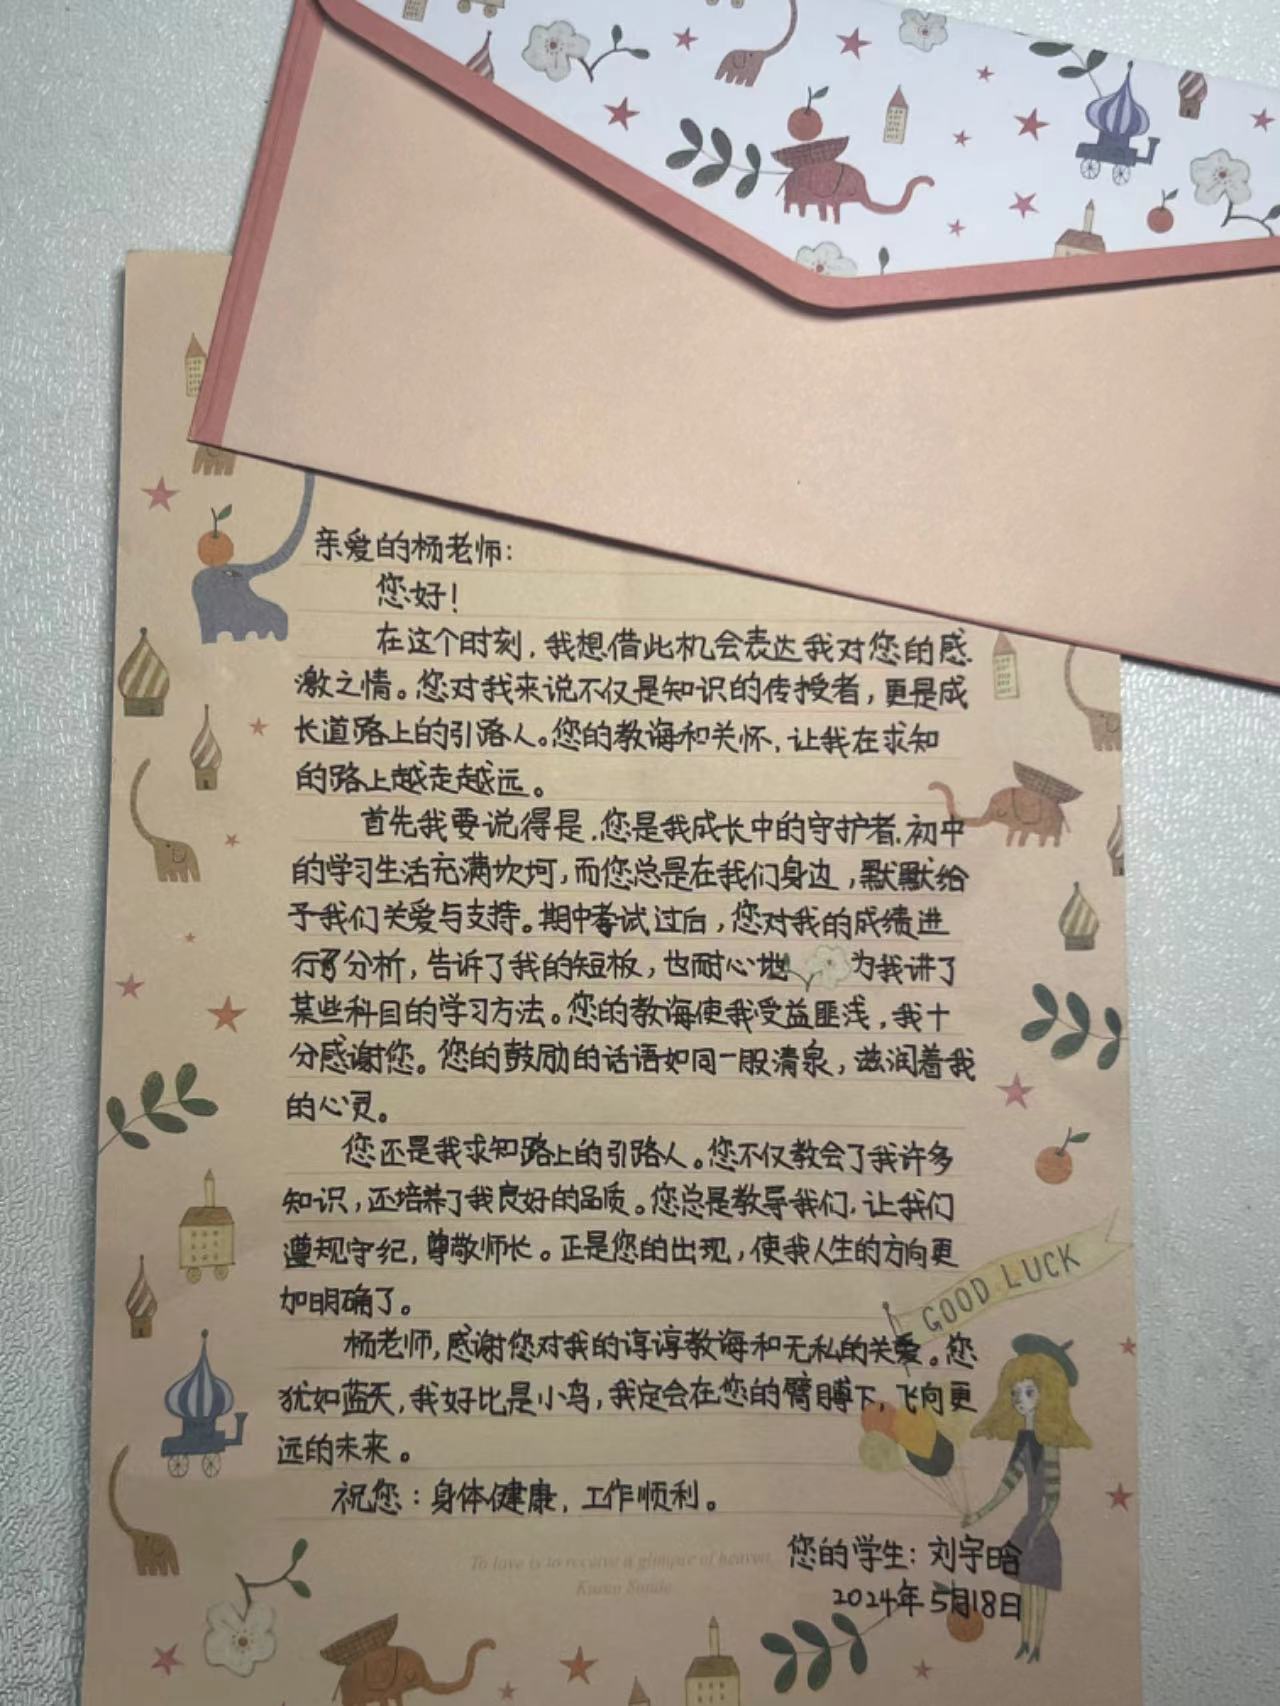 亲爱的杨老师：
您好！
在这个时刻，我想借此机会表达我对您的感
激之情。您对我来说不仅是知识的传授者，更是成
长道路上的引路人。您的教诲和关怀，让我在求知
的路上越走越远。
首先我要说得是，您是我成长中的守护者，初中
的学习生活充满坎坷，而您总是在我们身边，默默给
予我们关爱与支持。期中考试过后，您对我的成绩进
行了分析，告诉了我的短板，也耐心地为我讲了
某些科目的学习方法。您的教诲使我受益匪浅，我十
分感谢您。您的鼓励的话语如同一股清泉，滋润着我
的心灵。
您还是我求知路上的引路人。您不仅教会了我许多
知识，还培养了我良好的品质。您总是教导我们，让我们
遵规守纪，尊敬师长。正是您的出现，使我人生的方向更
加明确了。
GOOD LUCK
杨老师，感谢您对我的谆谆教诲和无私的关爱。您
犹如蓝天，我好比是小鸟，我定会在您的臂膊下，飞向更
远的未来。
祝您：身体健康，工作顺利。
To love is to receive a glimpse of heaven
Karen Sunde
您的学生：刘宇晗
2024年5月18日